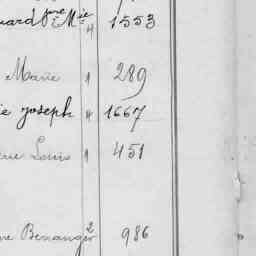 uard Jne Mie 4 1553
Marie 1 289
ie Joseph 4 1667
Louis 1 451
ne Benanger 2 986